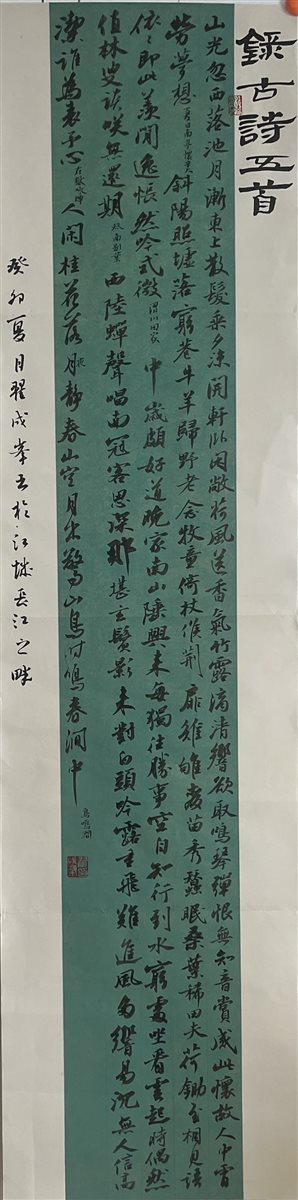 録古詩五首
山光忽西落池月漸東上散髮乘夕涼開軒臥閑敞荷風送香氣竹露滴清響欲取鳴琴彈恨無知音賞感此懷故人中宵
勞夢想 夏日南亭懷辛大 斜陽照墟落窮巷牛羊歸野老念牧童倚杖候荆扉雉雊麥苗秀蠶眠桑葉稀田夫荷鋤至相見語
依依即此羨閒逸悵然吟式微 渭川田家 中歲頗好道晚家南山陲興來每獨往勝事空自知行到水窮處坐看雲起時偶然
值林叟談咲無還期 終南別業 西陸蟬聲唱南冠客思深那堪玄鬢影來對白頭吟露重飛難進風多響易沉無人信高
潔誰為表予心 在獄咏蟬 人闲桂花落夜靜春山空月出驚山鳥时鳴春澗中
鳥鳴澗
癸卯夏月翟成峯书於江城長江之畔